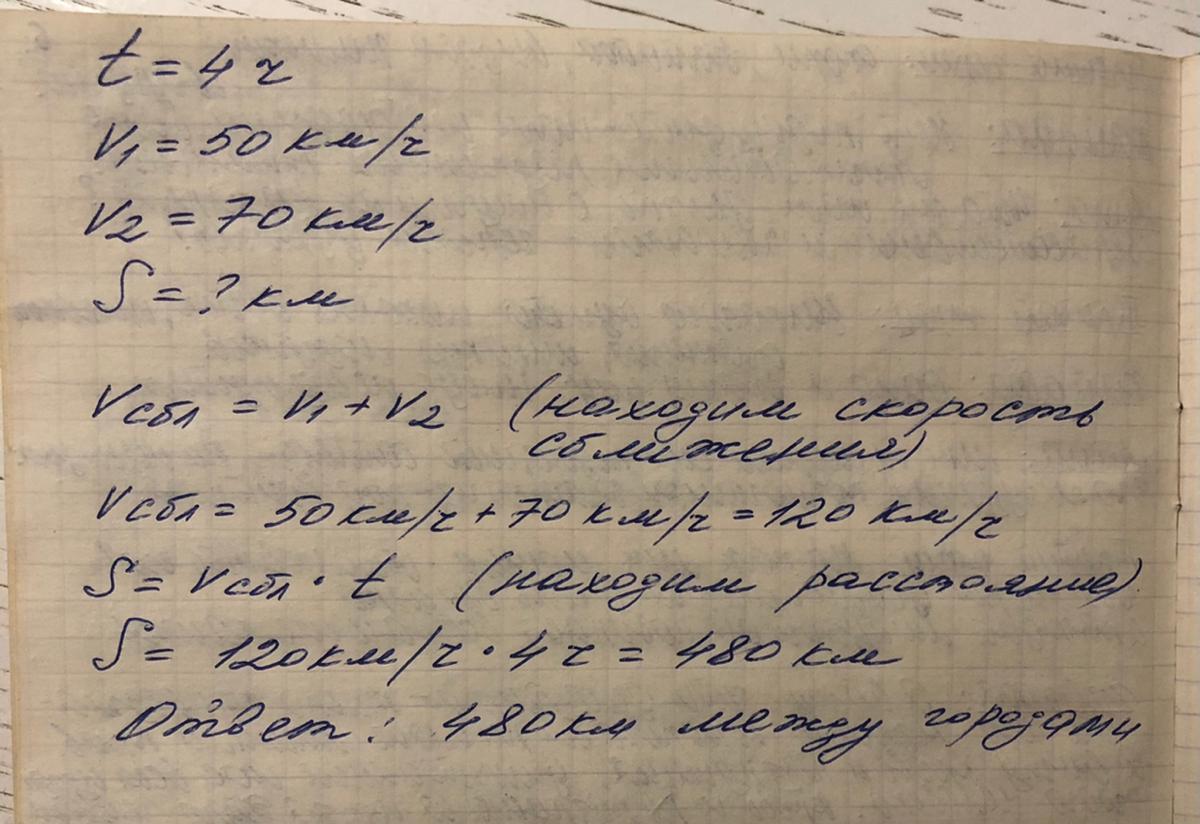 t = 4 ч
V1 = 50 км/ч
V2 = 70 км/ч
S = ? км
Vсбл = V1 + V2 (находим скорость
сближения)
Vсбл = 50 км/ч + 70 км/ч = 120 км/ч
S = Vсбл · t (находим расстояние)
S = 120 км/ч · 4 ч = 480 км
Ответ: 480 км между городами